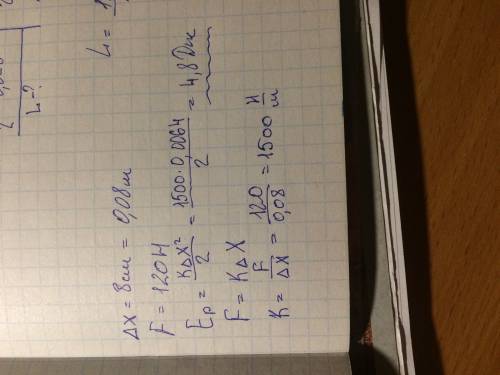 L-?
L =
ΔX = 8см = 0,08м
F = 120Н
Eр = КΔX²/2 = 1500·0,0064/2 = 4,8Дж
F = КΔX
К = F/ΔX = 120/0,08 = 1500 Н/м